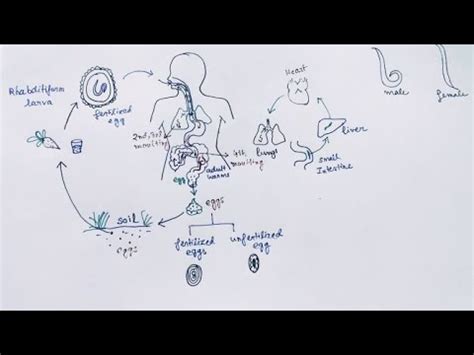 Rhabditiform
larva
fertilized
egg
2nd, 3rd
moulting
4th
moulting
adult
worms
egg
eggs
soil
eggs
fertilized
eggs
unfertilized
egg
Heart
lungs
liver
small
Intestine
male
female